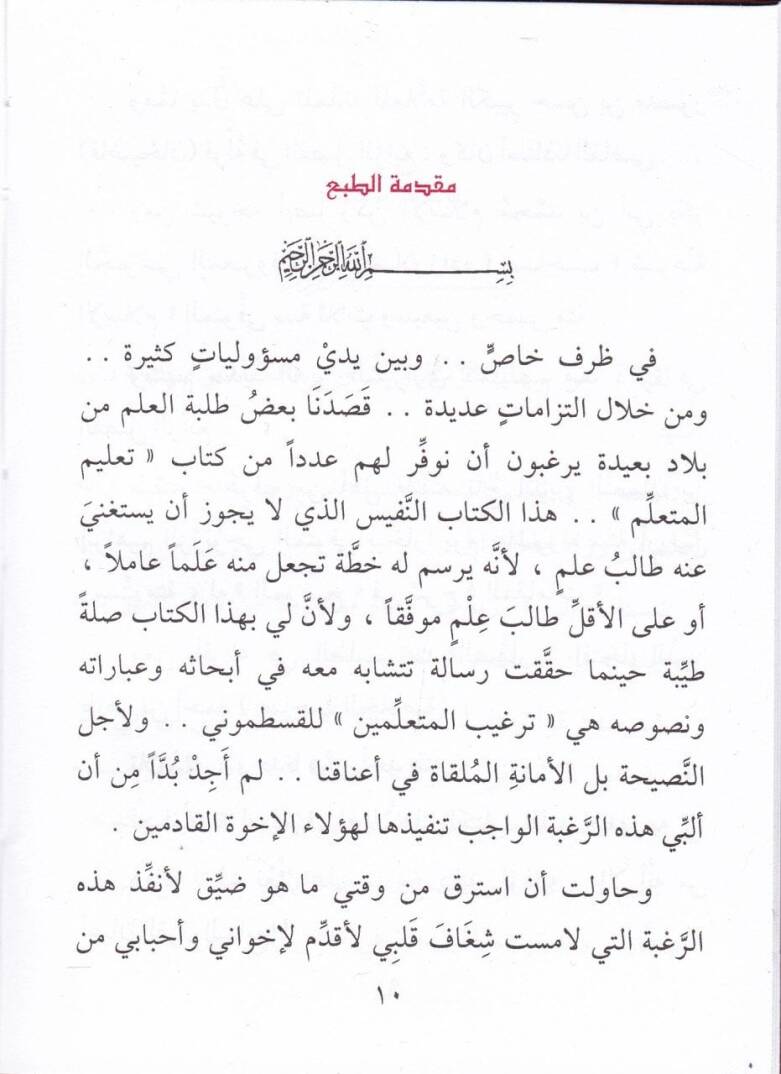 مقدمة الطبع
بِسْمِ اللهِ الرَّحْمَنِ الرَّحِيمِ
في ظرف خاصٍّ . . وبين يديْ مسؤولياتٍ كثيرة . .
ومن خلال التزاماتٍ عديدة . . قَصَدَنَا بعضُ طلبة العلم من
بلاد بعيدة يرغبون أن نوفِّر لهم عدداً من كتاب « تعليم
المتعلِّم » . . هذا الكتاب النَّفيس الذي لا يجوز أن يستغنيَ
عنه طالبُ علمٍ ، لأنَّه يرسم له خطَّة تجعل منه عَلَماً عاملاً ،
أو على الأقلِّ طالبَ عِلْمٍ موفَّقاً ، ولأنَّ لي بهذا الكتاب صلةً
طيِّبة حينما حقَّقت رسالة تتشابه معه في أبحاثه وعباراته
ونصوصه هي « ترغيب المتعلِّمين » للقسطموني . . ولأجل
النَّصيحة بل الأمانةِ المُلقاة في أعناقنا . . لم أَجِدْ بُدَّاً مِن أن
ألبِّي هذه الرَّغبة الواجب تنفيذها لهؤلاء الإخوة القادمين .
وحاولت أن استرق من وقتي ما هو ضيِّق لأنفِّذ هذه
الرَّغبة التي لامست شِغَافَ قَلبِي لأقدِّم لإخواني وأحبابي من
١٠